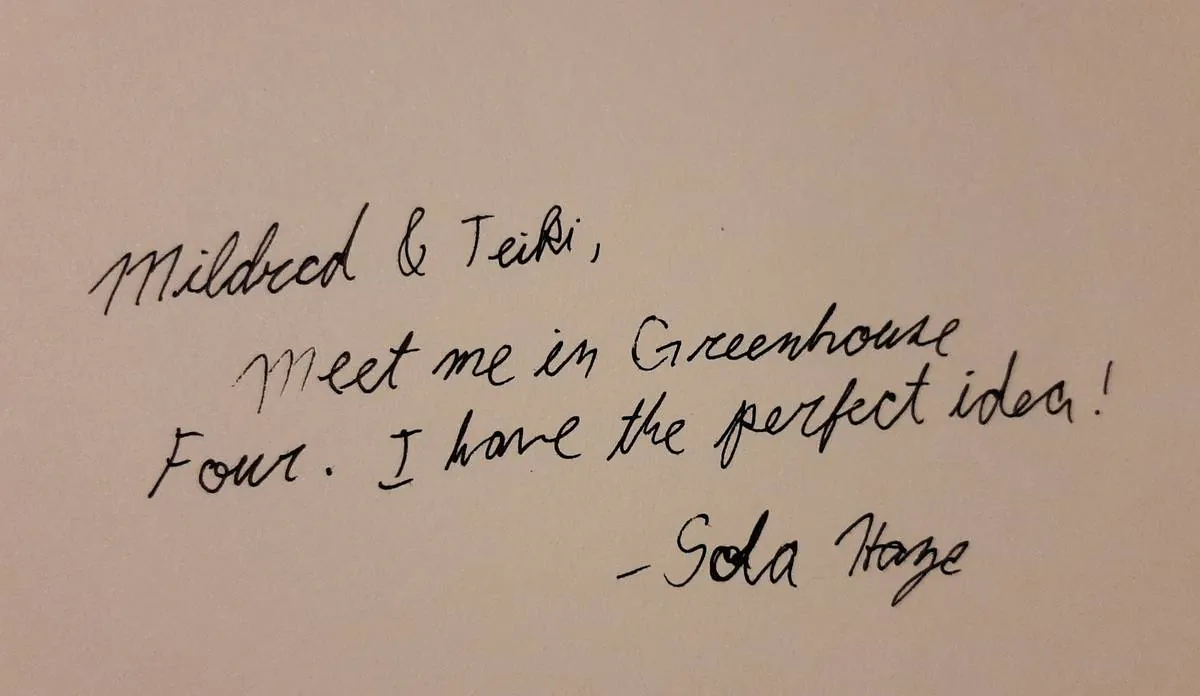 Mildred & Teiki,
Meet me in Greenhouse
Four. I have the perfect idea!
- Sola Haze